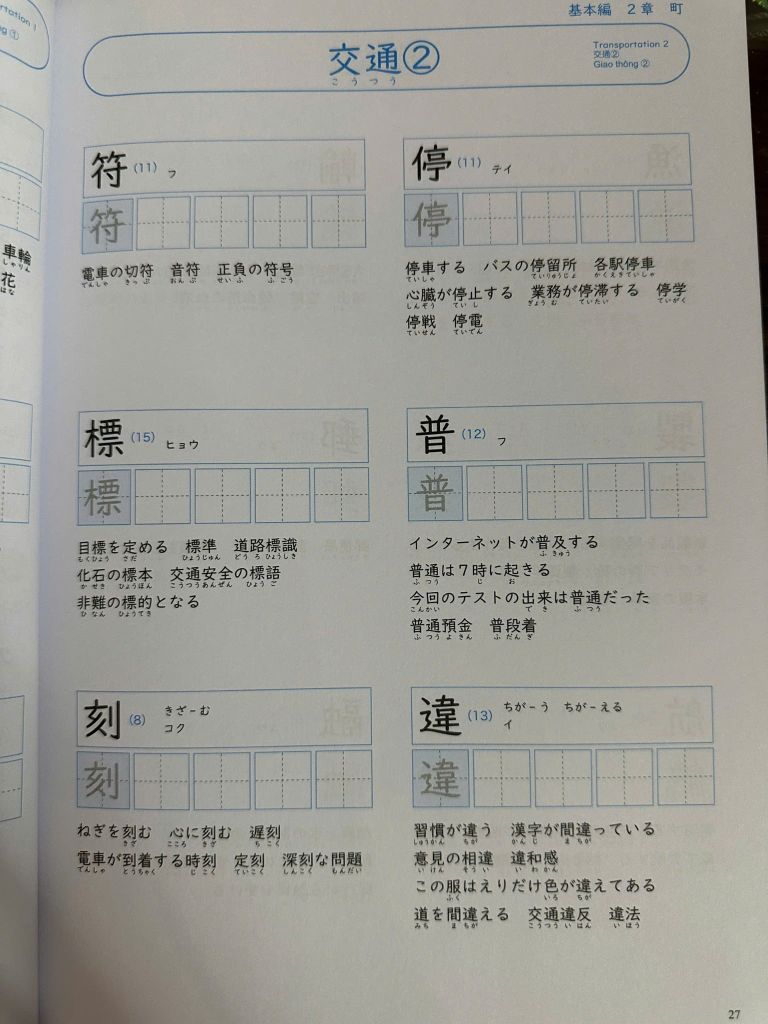 基本編 2章 町
交通②
こうつう
Transportation 2
交通②
Giao thông ②
符 (11) フ
符
電車の切符 音符 正負の符号
でんしゃ きっぷ おんぷ せいふ ふごう
停 (11) テイ
停
停車する バスの停留所 各駅停車
ていしゃ ていりゅうじょ かくえきていしゃ
心臓が停止する 業務が停滞する 停学
しんぞう ていし ぎょうむ ていたい ていがく
停戦 停電
ていせん ていでん
標 (15) ヒョウ
標
目標を定める 標準 道路標識
もくひょう さだ ひょうじゅん どうろひょうしき
化石の標本 交通安全の標語
かせき ひょうほん こうつうあんぜん ひょうご
非難の標的となる
ひなん ひょうてき
普 (12) フ
普
インターネットが普及する
ふきゅう
普通は7時に起きる
ふつう じ お
今回のテストの出来は普通だった
こんかい でき ふつう
普通預金 普段着
ふつうよきん ふだんぎ
刻 (8) きざ-む
コク
刻
ねぎを刻む 心に刻む 遅刻
きざ こころ きざ ちこく
電車が到着する時刻 定刻 深刻な問題
でんしゃ とうちゃく じこく ていこく しんこく もんだい
違 (13) ちが-う ちが-える
イ
違
習慣が違う 漢字が間違っている
しゅうかん ちが かんじ まちが
意見の相違 違和感
いけん そうい いわかん
この服はえりだけ色が違えてある
ふく いろ ちが
道を間違える 交通違反 違法
みち まちが こうつういはん いほう
27
車輪
しゃりん
花
はな